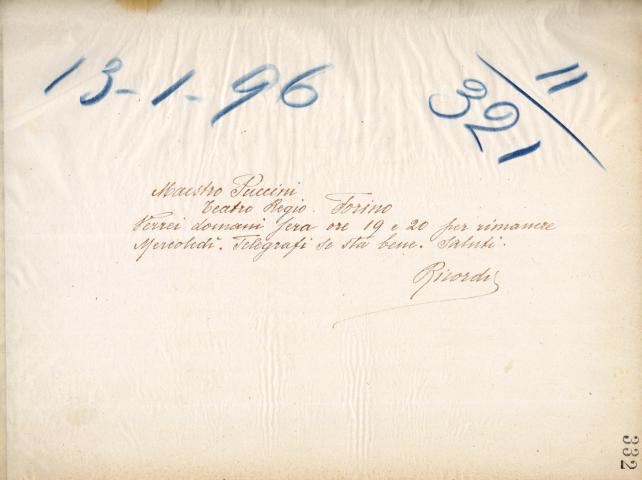 13-1-96
11/321
Maestro Puccini
Teatro Regio. Torino
Verrei domani sera ore 19 e 20 per rimanere
Mercoledì. Telegrafi se sta bene. Saluti.
Ricordi
332